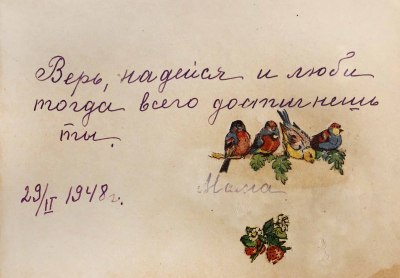 Верь, надейся и люби
тогда всего достигнешь
ты.
29/II 1948г.
Мама